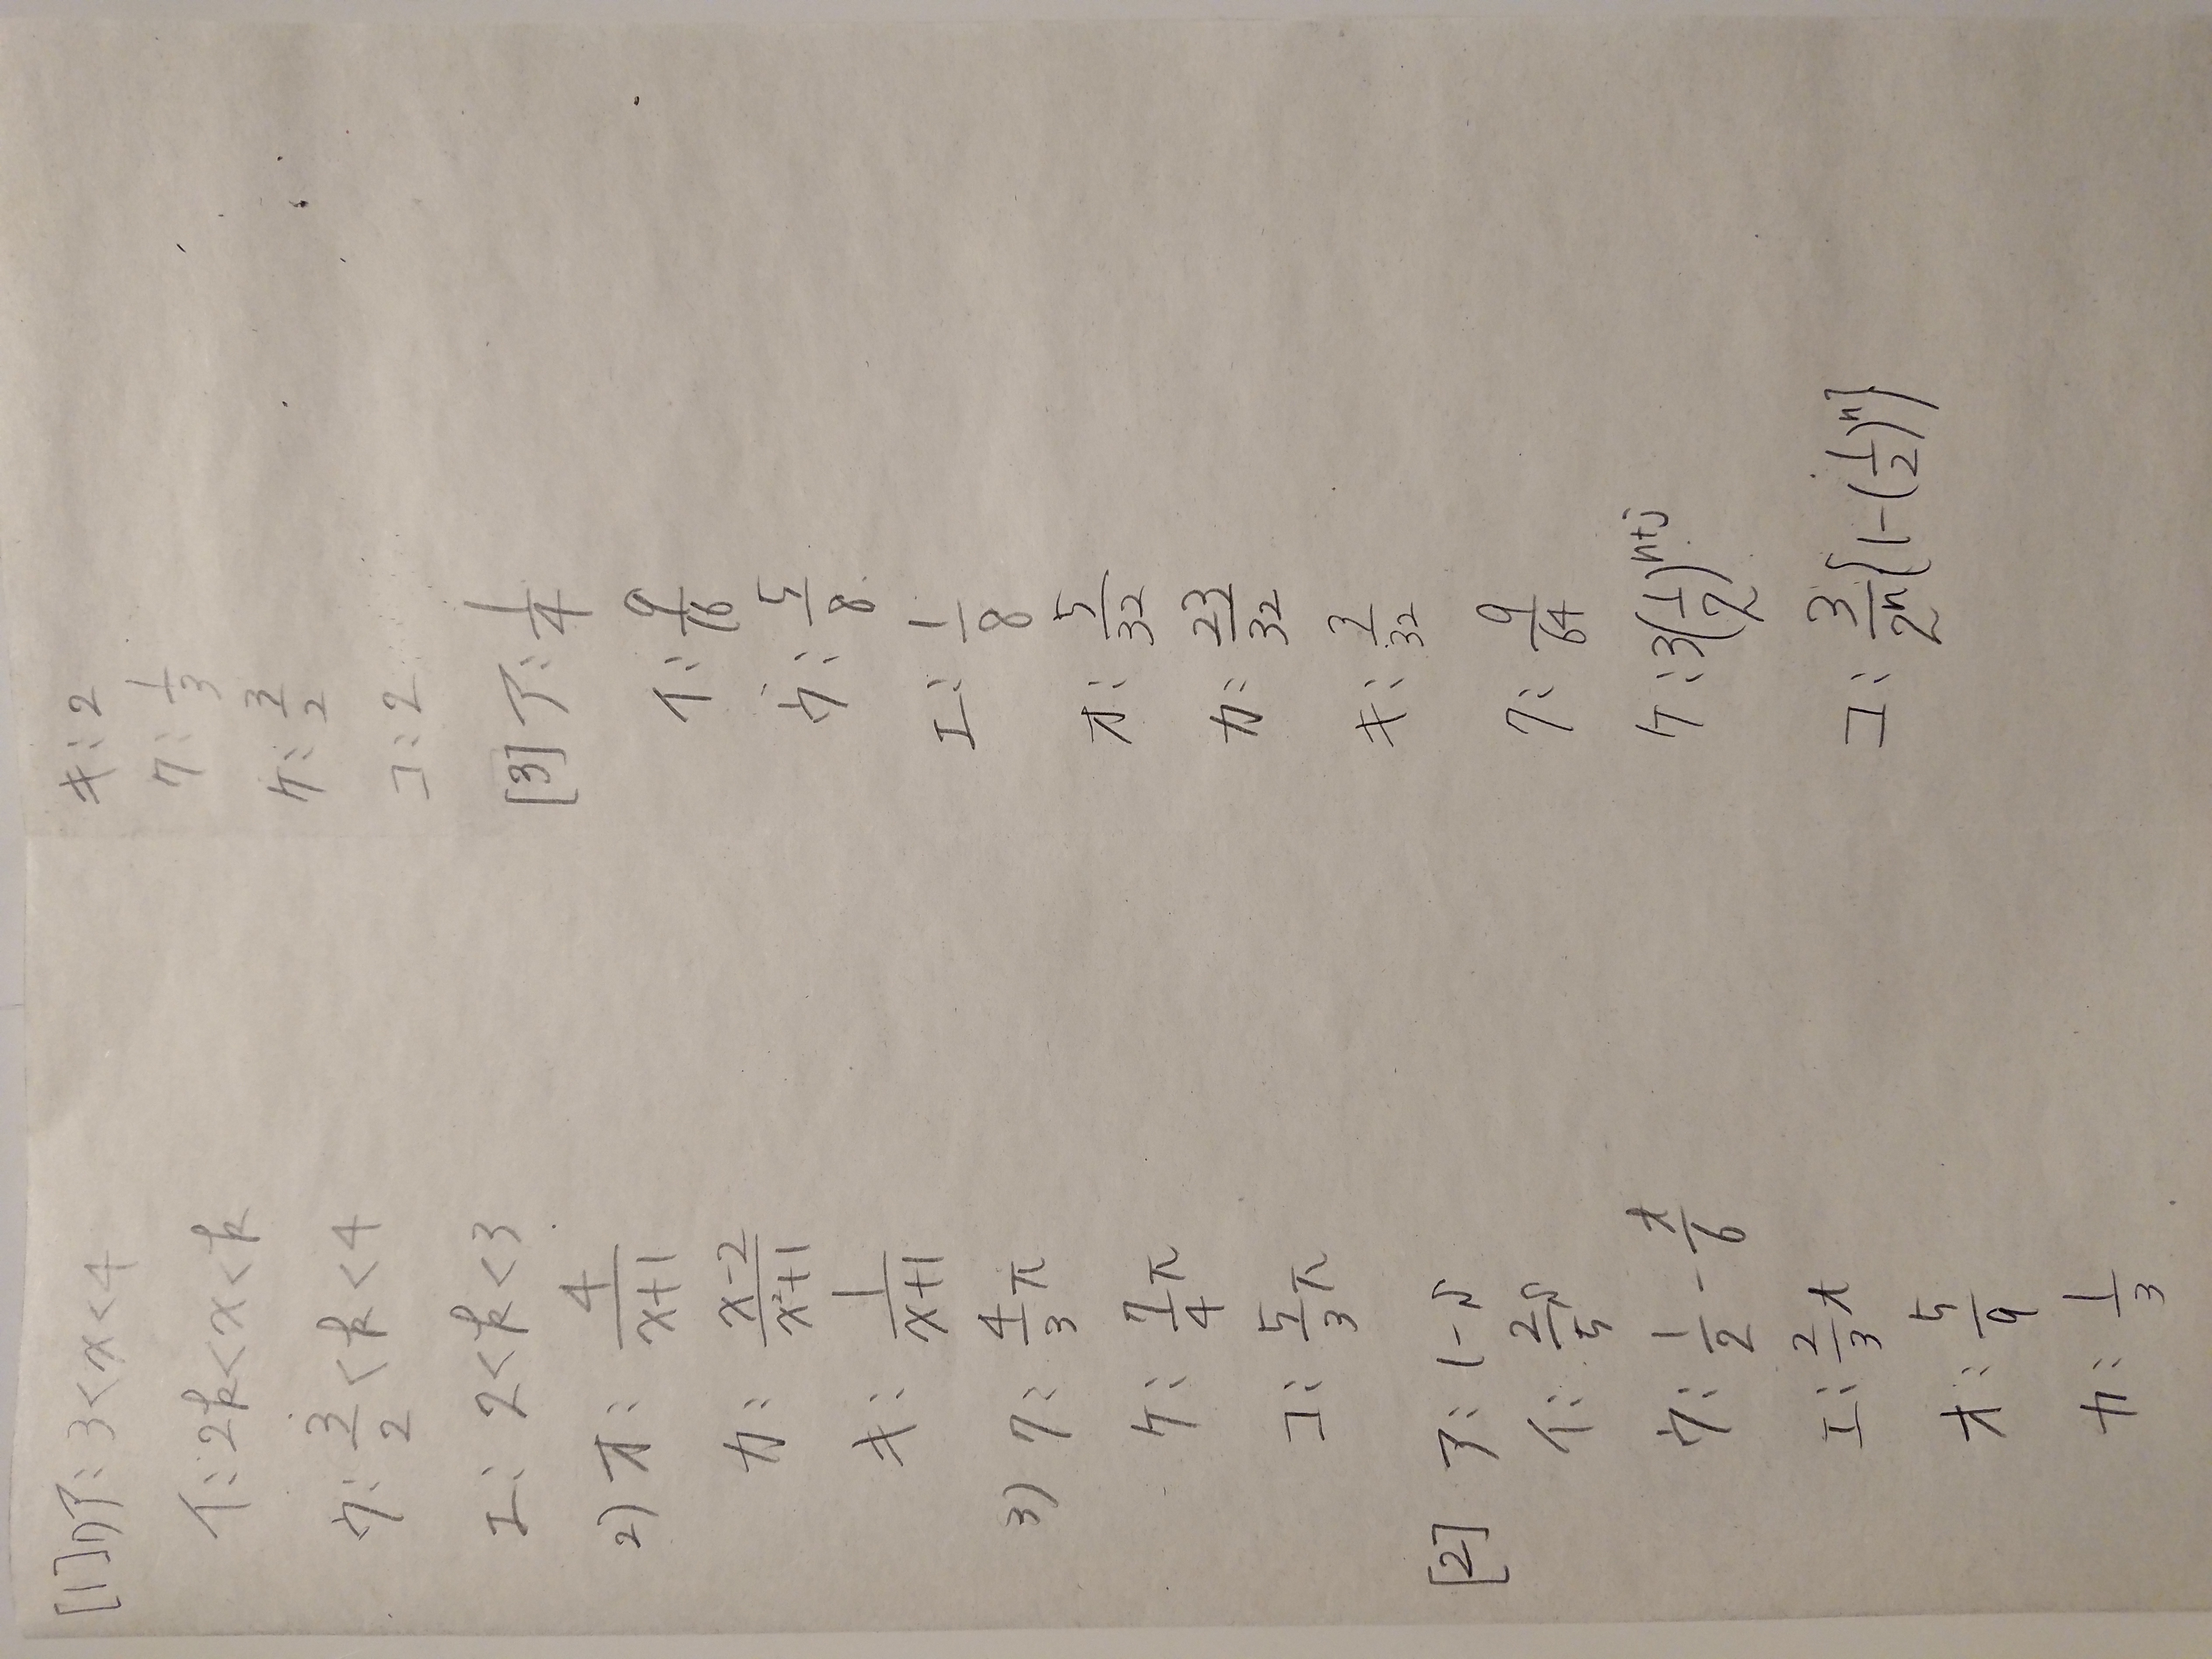 [1]1)ア: 3<x<4
イ: 2k<x<k
ウ: 3/2<k<4
エ: 2<k<3
2) オ: 4/(x+1)
カ: (x-2)/(x²+1)
キ: 1/(x+1)
3) ク: 4/3 π
ケ: 7/4 π
コ: 5/3 π
[2] ア: 1-s
イ: 2/5 s
ウ: 1/2 - t/6
エ: 2/3 t
オ: 5/9
カ: 1/3
キ: 2
ク: 1/3
ケ: 3/2
コ: 2
[3] ア: 1/4
イ: 9/16
ウ: 5/8
エ: 1/8
オ: 5/32
カ: 23/32
キ: 3/32
ク: 9/64
ケ: 3(1/2)^(n+j)
コ: 3/2^n {1-(1/2)^n}